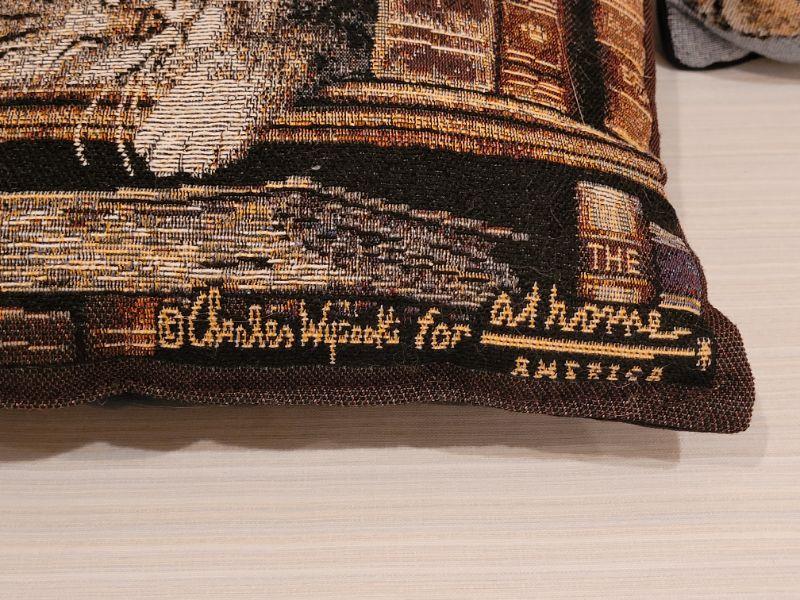 THE
© Charles Wysocki for at home
AMERICA